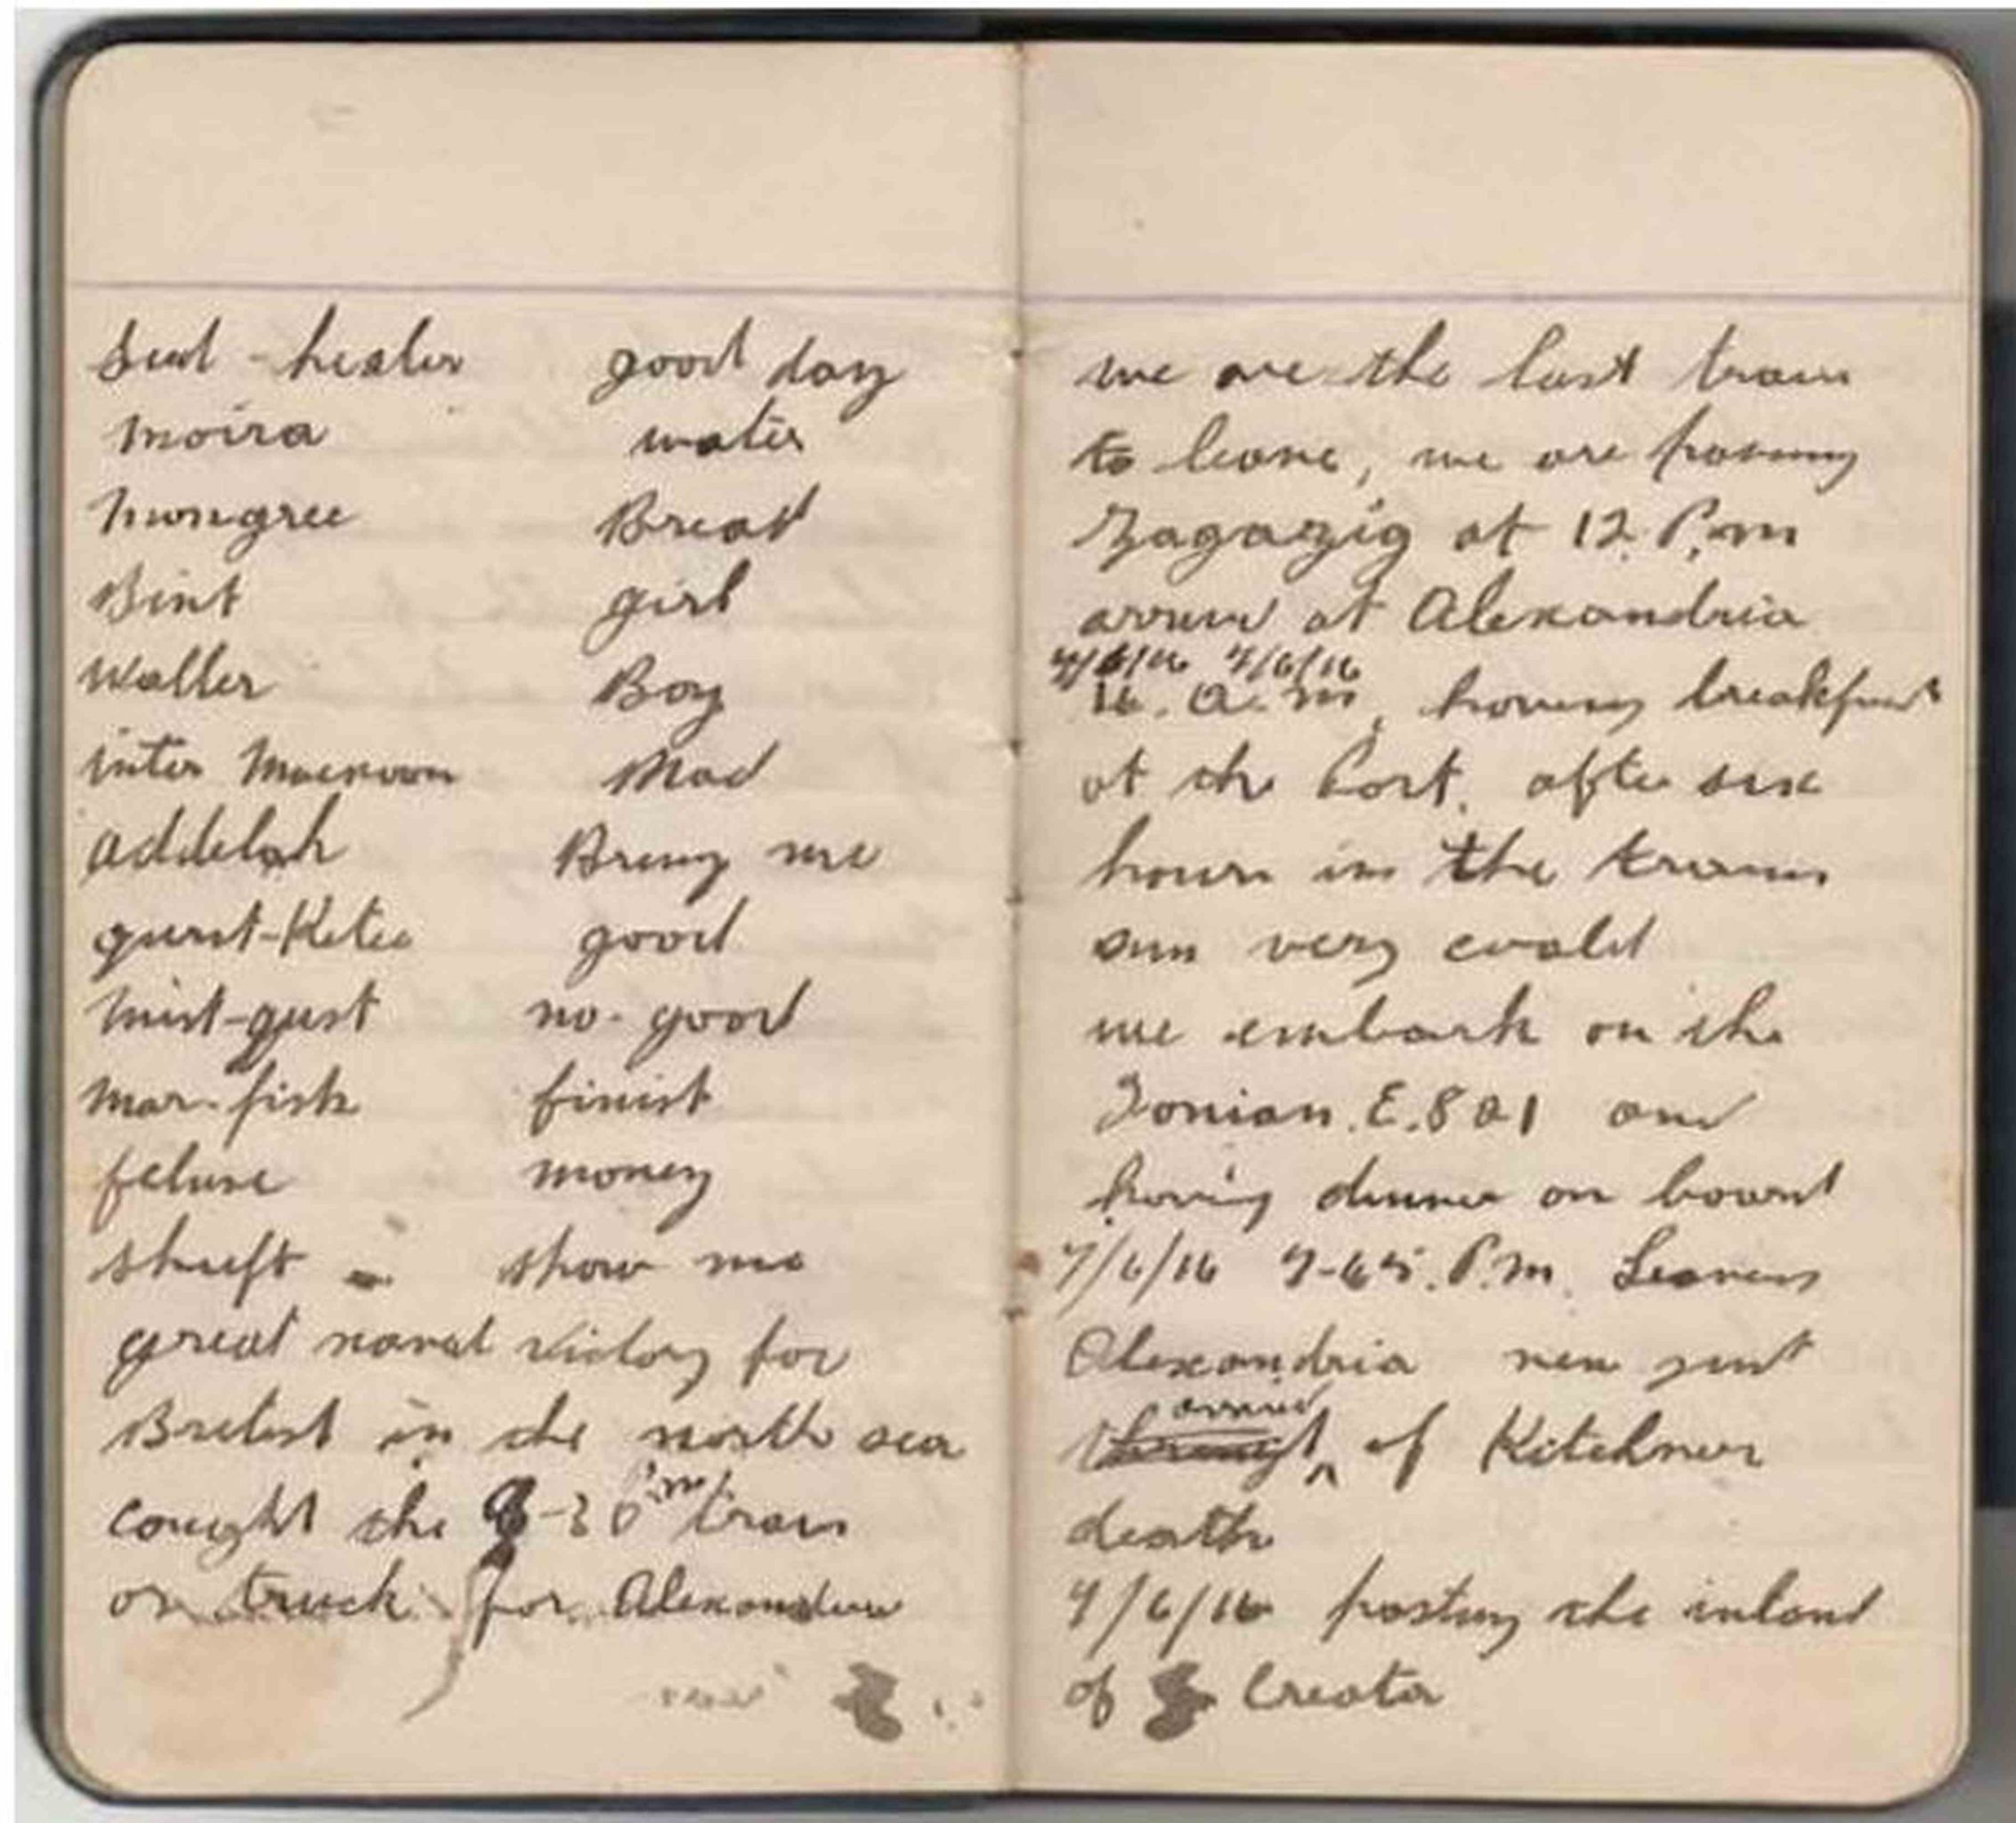 Sud - healer good day
Moira water
Mungree Bread
Bint girl
Waller Boy
inter Macnoon Mad
addelah Bring me
qurst-Ketee good
Mist-qust no-good
Mar-fish finist
feluse money
shuft - show me
great naval victory for
Britist in the north sea
cought the 8-30 P.m. train
on truck for Alexandria
we are the last train
to leave, we are passing
Zagazig at 12. P.m
arrived at Alexandria
7/6/16 7/6/16
16. a.m, having breakfast
at the Port. after six
hours in the trains
sum very coald
we embark on the
Ionian. E.801 and
having dinner on board
7/6/16 P.m. Leaves
Alexandria news just
arrived
of Kitchner
death
9/6/16 passing the island
of Creater